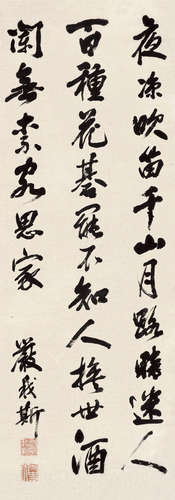 夜凉吹笛千山月路暗迷人
百種花碁罷不知人換世酒
闌無奈客思家
嚴我斯